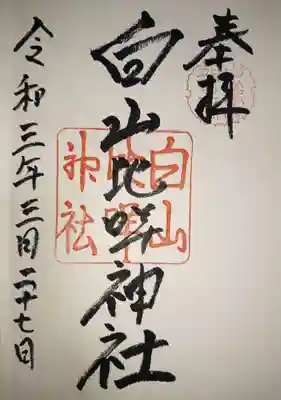 奉拝
白山比咩神社
令和三年三月二十七日
白山
比咩
神社